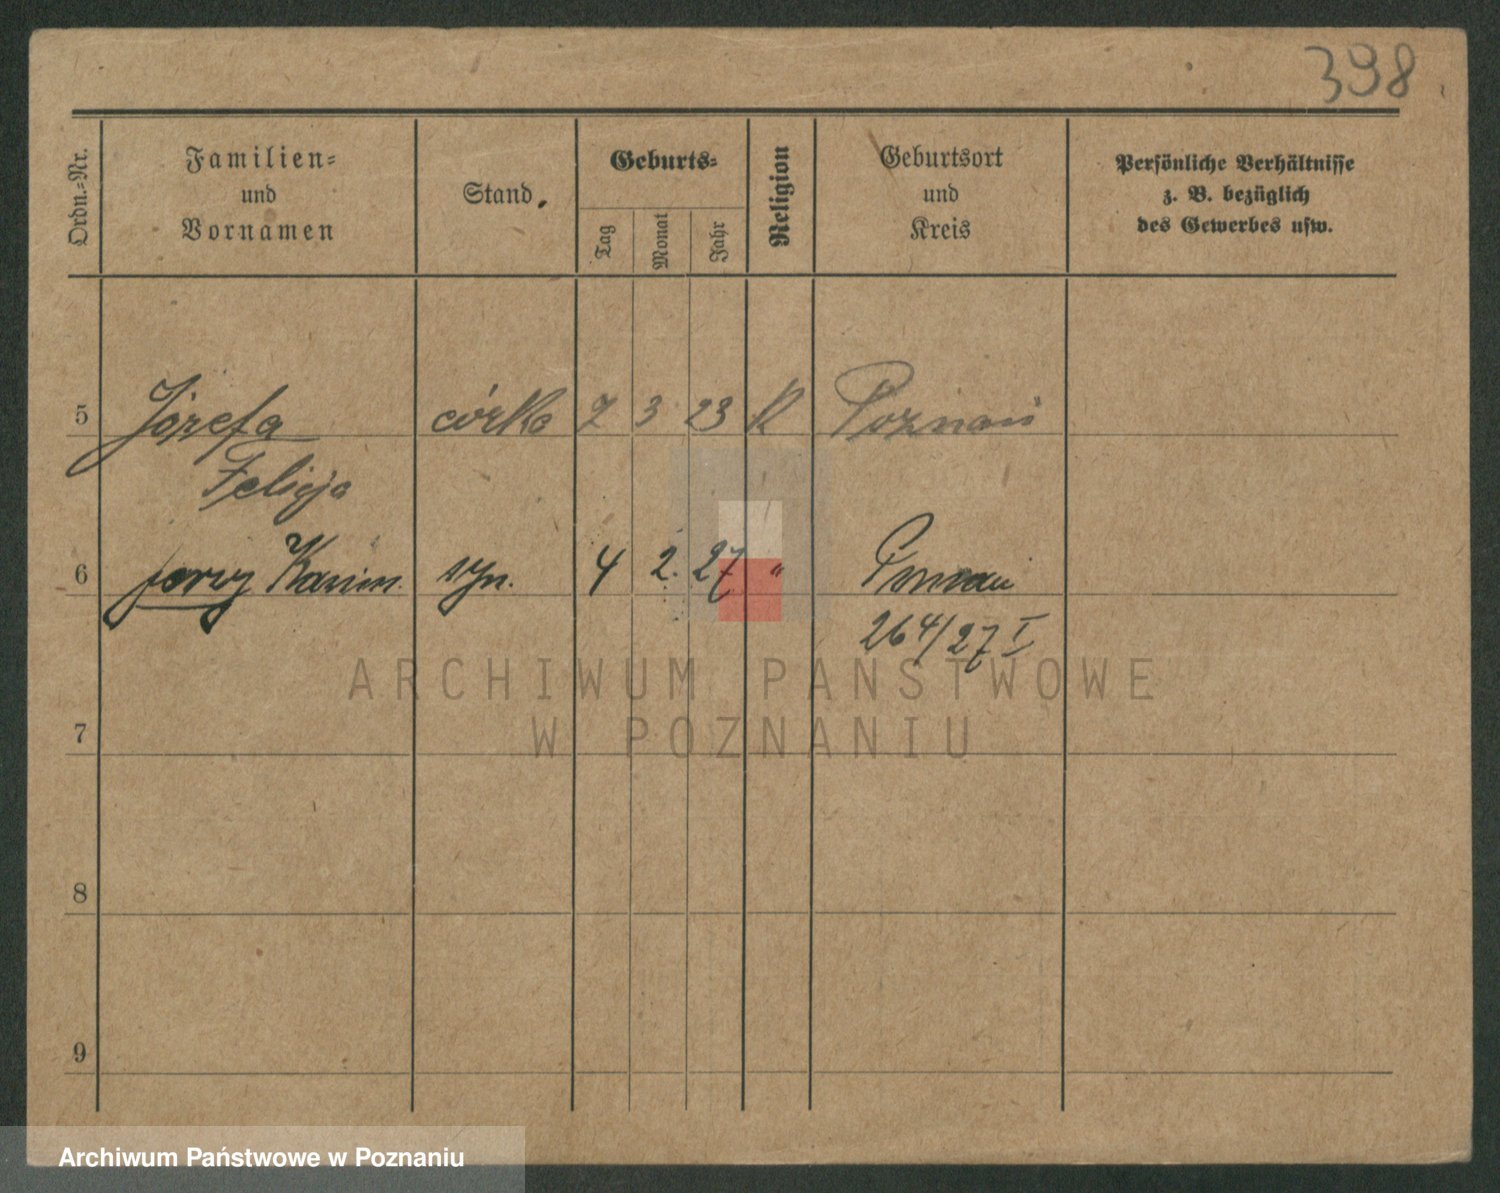 398
Ordn.=Nr.
Familien=
und
Vornamen
Stand.
Geburts=
Tag
Monat
Jahr
Religion
Geburtsort
und
Kreis
Persönliche Verhältnisse
z. B. bezüglich
des Gewerbes usw.
5 Józefa córka 7 3 23 K Poznań
Felicja
6 Jerzy Kazim. syn. 4 2. 27 " Poznań
264/27 I
ARCHIWUM PAŃSTWOWE
W POZNANIU
7
8
9
Archiwum Państwowe w Poznaniu